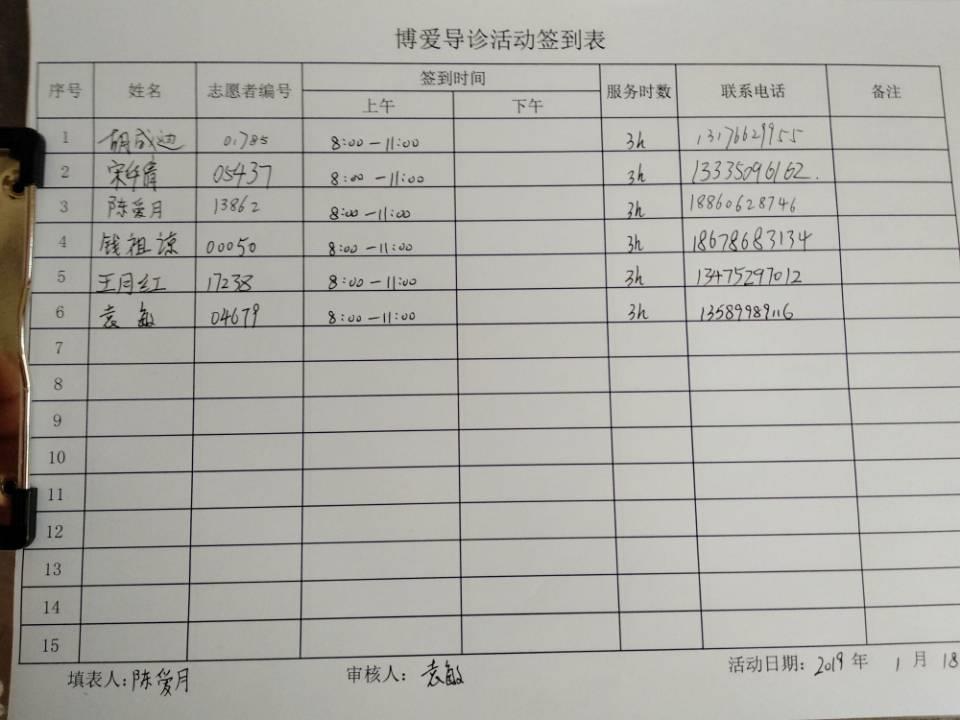 博爱导诊活动签到表
序号 姓名 志愿者编号 签到时间 服务时数 联系电话 备注
上午 下午
1 胡成迪 01785 8:00-11:00 3h 13176629955
2 05437 8:00-11:00 3h 13335096162.
3 陈爱月 13862 8:00-11:00 3h 18860628746
4 钱祖谅 00050 8:00-11:00 3h 18678683134
5 王月红 17238 8:00-11:00 3h 13475297012
6 袁敏 04679 8:00-11:00 3h 13589989116
7
8
9
10
11
12
13
14
15
填表人:陈爱月 审核人:袁敏 活动日期:2019年 1月 18